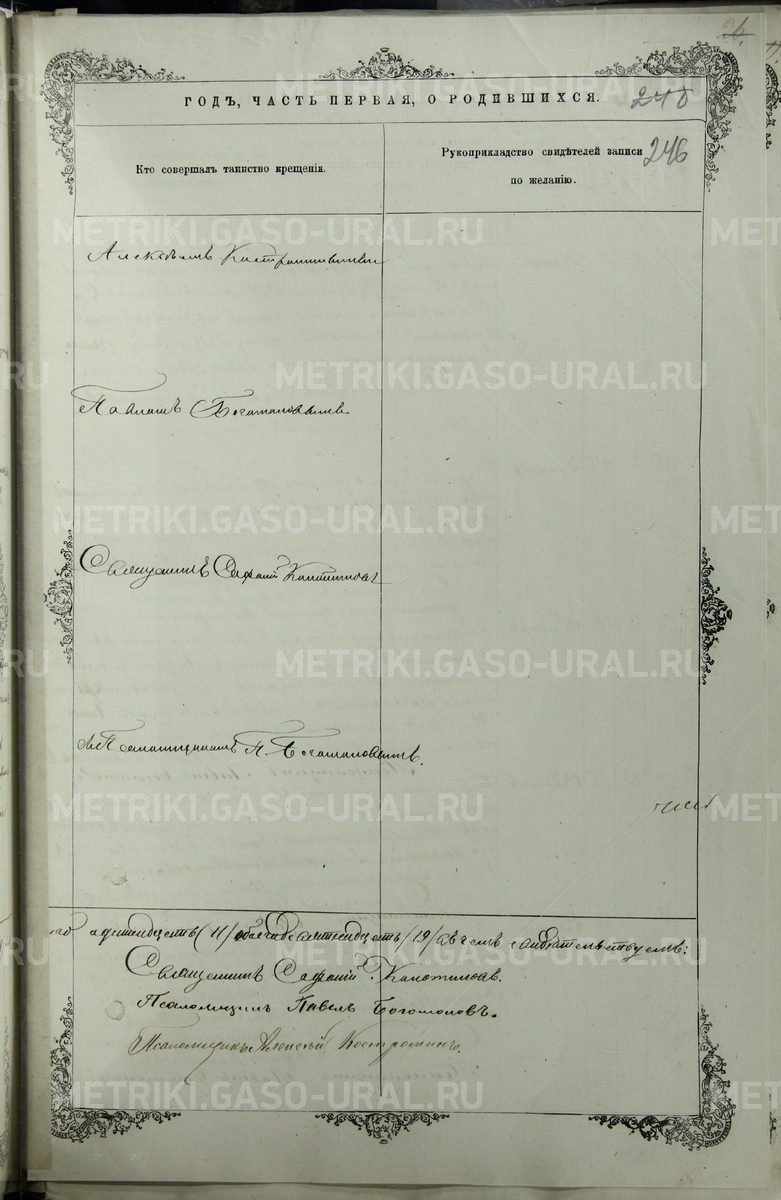 24.
ГОДЪ, ЧАСТЬ ПЕРВАЯ, О РОДИВШИХСЯ. 248
Кто совершалъ таинство крещенія.
Рукоприкладство свидѣтелей записи 246
по желанію.
Алексѣемъ Костроминымъ
Павломъ Богомоловымъ.
Священникъ Софроній
и Псаломщикомъ П. Богомоловымъ.
одинадцать (11) обоего девятнадцать (19) а всемъ свидѣтельствуемъ:
Священникъ Софроній
Псаломщикъ Павелъ Богомоловъ.
Псаломщикъ Алексѣй Костроминъ.
METRIKI.GASO-URAL.RU